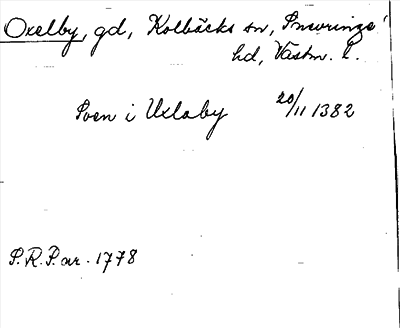 Oxelby, gd, Kolbäcks sn, Snevringe
hd, Västm. l.
Sven i Uxlaby 20/11 1382
S.R.P. nr. 1778